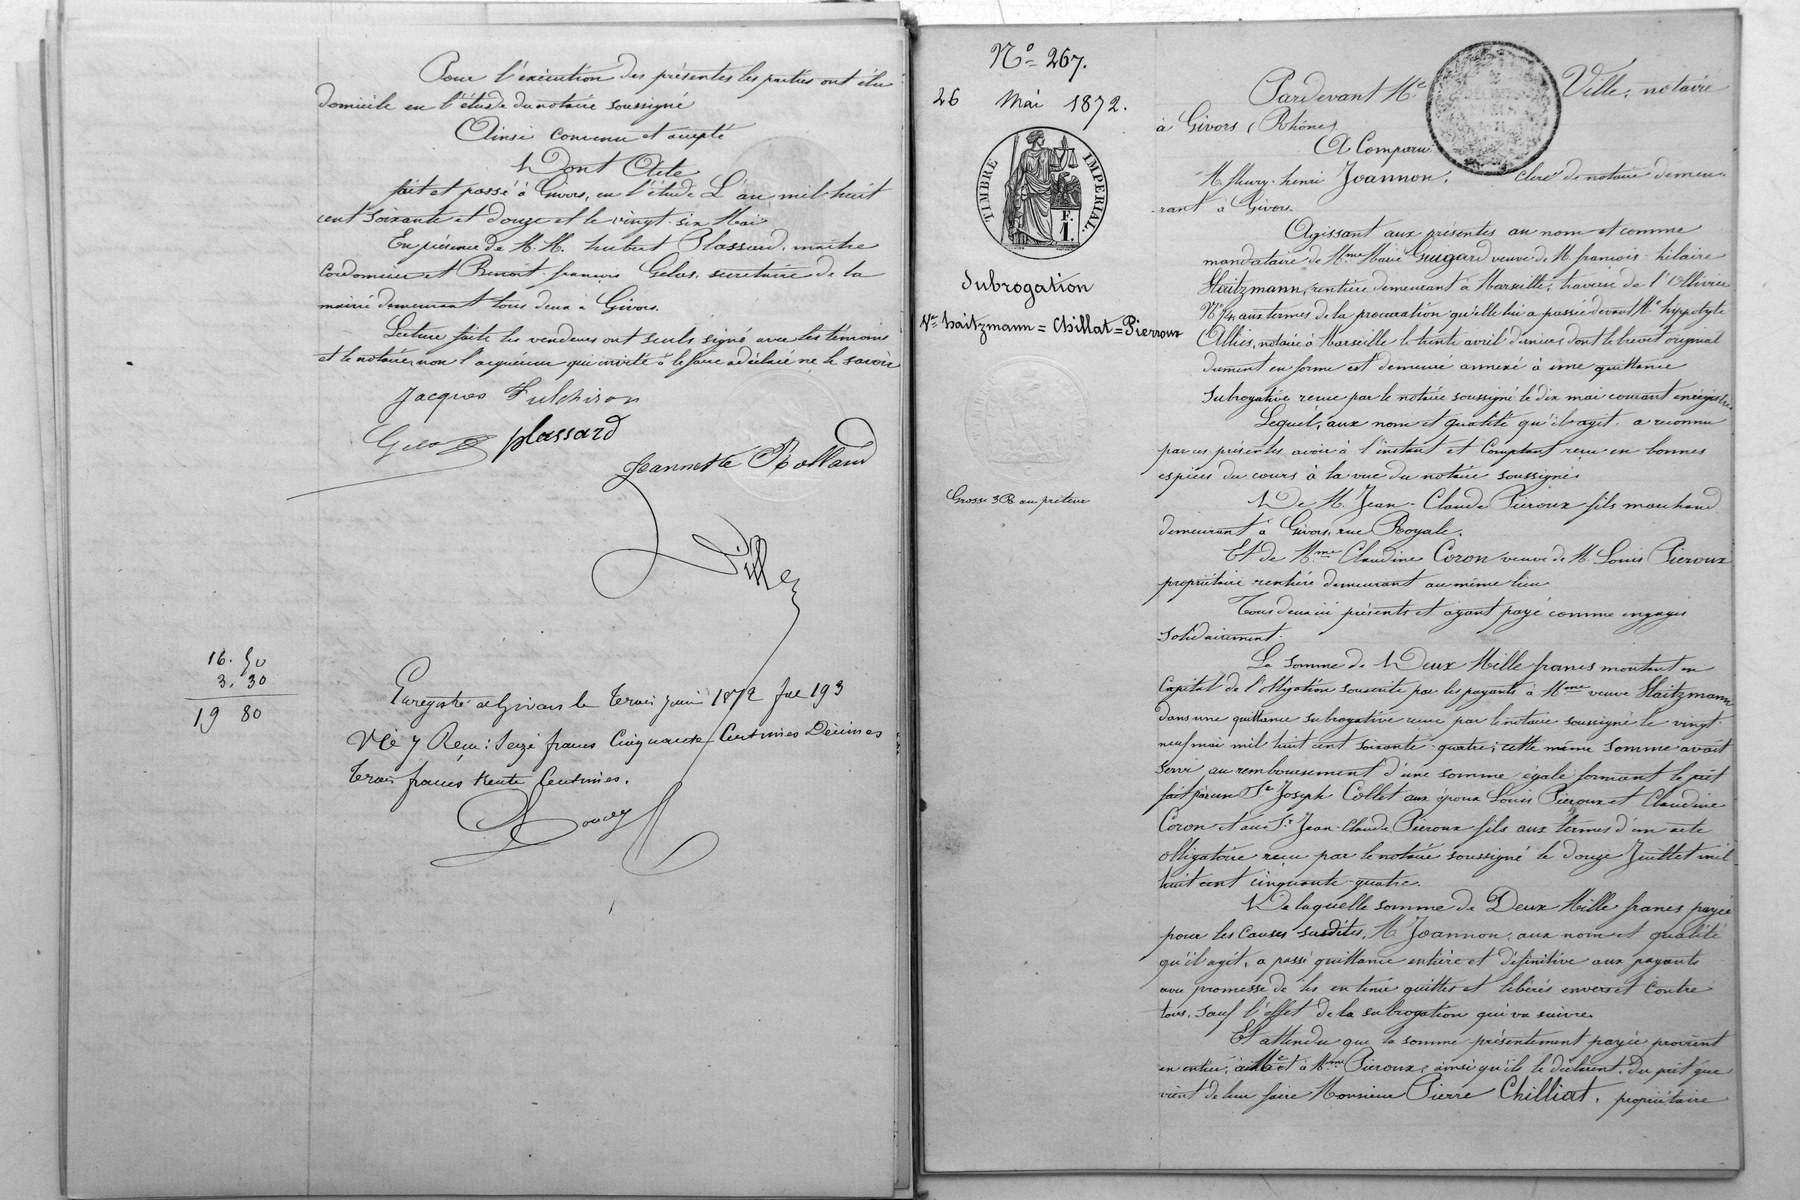 Pour l'exécution des présentes les parties ont élu
domicile en l'étude du notaire soussigné
Ainsi convenu et accepté
Dont Acte
fait et passé à Givors, en l'étude L'an mil huit
cent soixante et douze et le vingt-six Mai
En présence de M.M. hubert Plassard, maître
Cordonnier et Benoit françois Gelas, secrétaire de la
mairie demeurant tous deux à Givors.
Lecture faite les vendeurs ont seuls signé avec les témoins
et le notaire, non l'acquéreur qui invité à le faire a déclaré ne le savoir
Jacques Fulchiron
Gelas plassard
Jeannette Rolland
Ville
16. 50
3. 30
19 80
Enregistré à Givors le trois juin 1872 fol 193
Vo Ce 7 Reçu: Seize francs Cinquante Centimes Décimes
trois francs trente Centimes.
No 267.
26 Mai 1872.
TIMBRE IMPERIAL.
F.
1.
Subrogation
Ve haitzmann = Chillat = Pierroux
Grosse 3 R au prêteur
Pardevant Me Ville, notaire
à Givors (Rhône)
A Comparu
M. fleury-henri Joannon, clerc de notaire demeu-
rant à Givors.
Agissant aux présentes au nom et comme
mandataire de Mme Marie Guigard veuve de M. françois-hilaire
Haitzmann, rentière demeurant à Marseille, traverse de l'Ollivier
No 74, aux termes de la procuration qu'elle lui a passée devant Me hippolyte
Allies, notaire à Marseille le trente avril dernier dont le brevet original
dûment en forme est demeuré annexé à une quittance
subrogative reçue par le notaire soussigné le dix mai courant enregistrée
Lequel, aux nom et qualité qu'il agit, a reconnu
par ces présentes avoir à l'instant et Comptant reçu en bonnes
espèces du cours à la vue du notaire soussigné
De M. Jean-Claude Pieroux fils marchand
demeurant à Givors, rue Royale.
Et de Mme Claudine Coron veuve de M. Louis Pieroux
propriétaire rentière demeurant au même lieu
Tous deux ici présents et ayant payé comme engagés
solidairement.
La somme de Deux Mille francs montant en
Capital de l'obligation souscrite par les payants à Mme veuve Haitzmann
dans une quittance subrogative reçue par le notaire soussigné le vingt-
neuf mai mil huit cent soixante-quatre; cette même somme avait
servi au remboursement d'une somme égale formant le prêt
fait par un Sr Joseph Collet aux époux Louis Pieroux et Claudine
Coron et au Sr Jean-Claude Pieroux fils aux termes d'un acte
obligatoire reçu par le notaire soussigné le douze Juillet mil
huit cent cinquante-quatre.
De laquelle somme de Deux Mille francs payée
pour les causes susdites, M. Joannon, aux nom et qualité
qu'il agit, a passé quittance entière et définitive aux payants
avec promesse de les en tenir quittes et libérés envers et contre
tous, sauf l'effet de la subrogation qui va suivre.
Et attendu que la somme présentement payée provient
en entier, à M. et à Mme Pieroux, ainsi qu'ils le déclarent, du prêt que
vient de leur faire Monsieur Pierre Chilliat, propriétaire